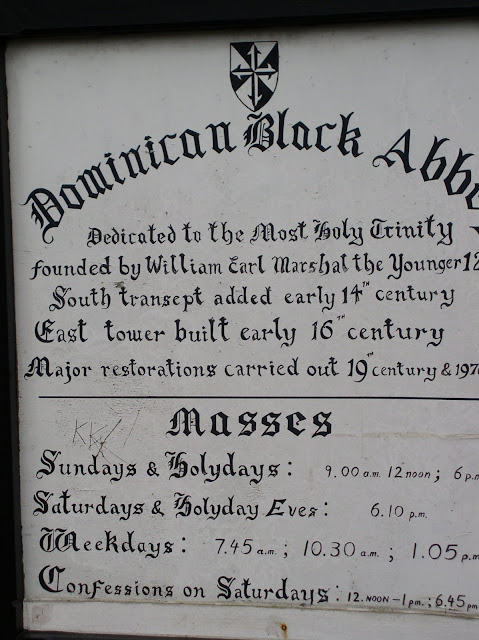 Dominican Black Abbe
Dedicated to the Most Holy Trinity
founded by William Earl Marshal the Younger 12
South transept added early 14TH century
East tower built early 16TH century
Major restorations carried out 19TH century & 197
Masses
Sundays & Holydays: 9.00 a.m. 12 noon; 6 p.m
Saturdays & Holyday Eves: 6.10 p.m.
Weekdays: 7.45 a.m.; 10.30 a.m.; 1.05 p.m
Confessions on Saturdays: 12. NOON - 1 pm.; 6.45 pm